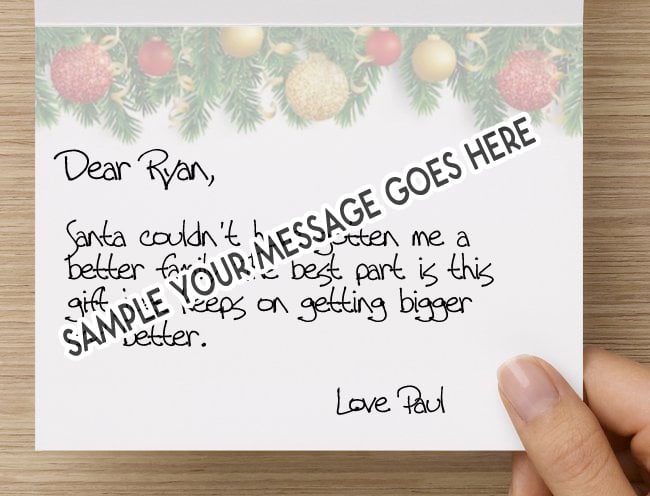 Dear Ryan,
Santa couldn't gotten me a
better family best part is this
gift keeps on getting bigger
better.
Love Paul
SAMPLE YOUR MESSAGE GOES HERE